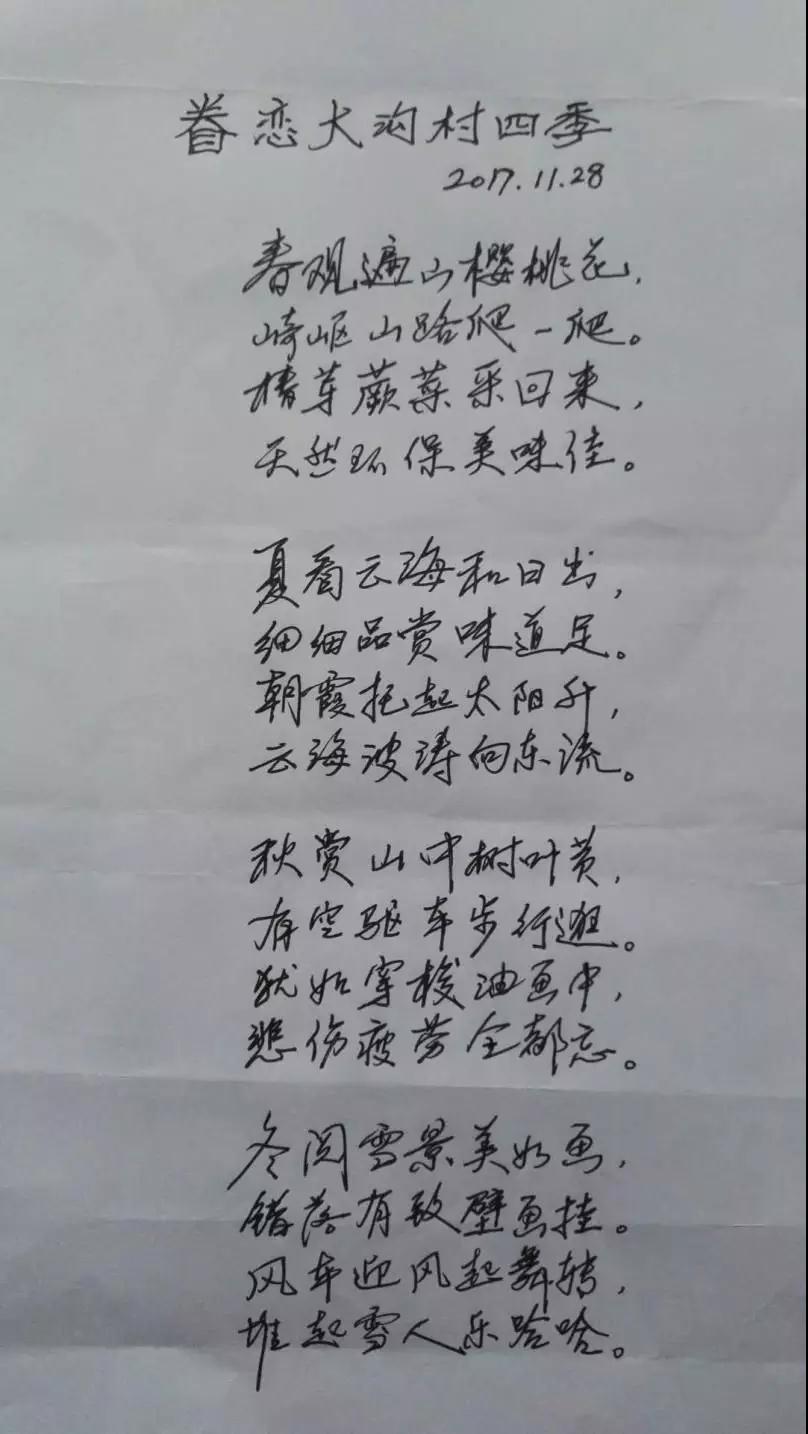 眷恋大沟村四季
2017.11.28
春观遍山樱桃花，
崎岖山路爬一爬。
椿芽蕨菜采回来，
天然环保美味佳。
夏看云海和日出，
细细品赏味道足。
朝霞托起太阳升，
云海波涛向东流。
秋赏山中树叶黄，
有空驱车步行逛。
犹如穿梭油画中，
悲伤疲劳全都忘。
冬阅雪景美如画，
错落有致壁画挂。
风车迎风起舞转，
堆起雪人乐哈哈。